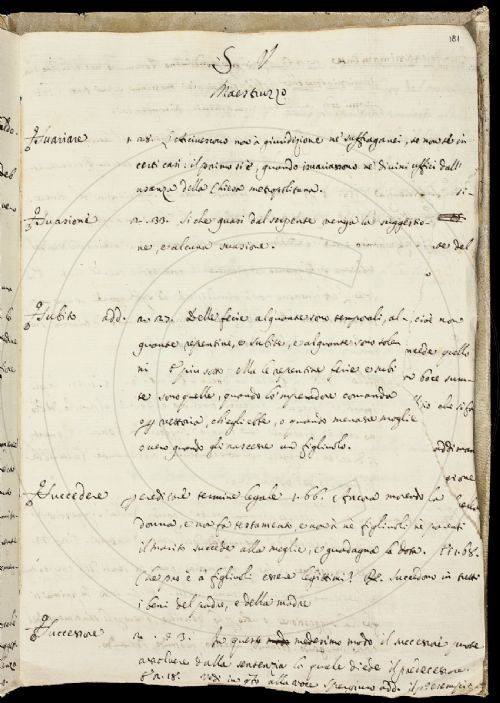 181
S V
Maestruzzo
Suariare 1. 28. L'Arcivescovo non à giurisdizione ne' suffraganei, se non se in
certi casi: il primo si è, quando isvariassono ne' divini uffici dall'
usanza della Chiesa metropolitana.
Suasione 2. 133. Sì che quasi dal serpente venga la suggestio-
ne, e alcuna suasione.
te del
Subito add. 2. 27. Delle ferie alquante sono temporali, al-
cioè non
quante repentine, e subite, e alquante sono solen
ni E più sotto. Ma le repentine ferie e subi
te sono quelle, quando lo 'mperadore comanda
o p vettoria, ch'egli ebbe, o quando menasse moglie
o vero quando gli nascesse un figliuolo.
quello
addiman
gione
Succedere p eredicare termine legale 1. 66. E ancora morendo la
donna, e non fa testamento, e non à nè figliuoli, nè parenti
il marito succede alla moglie, e guadagna la dota. E 1. 68.
Che pro è a' figliuoli essere legittimi? Re. Succedono in tutti
i beni del padre, e della madre
Successore 2. 43. In questo medesimo modo il successore puote
assolvere dalla sentenzia la quale diede il predecessore.
E 2. 18. Vedi in qto alla voce